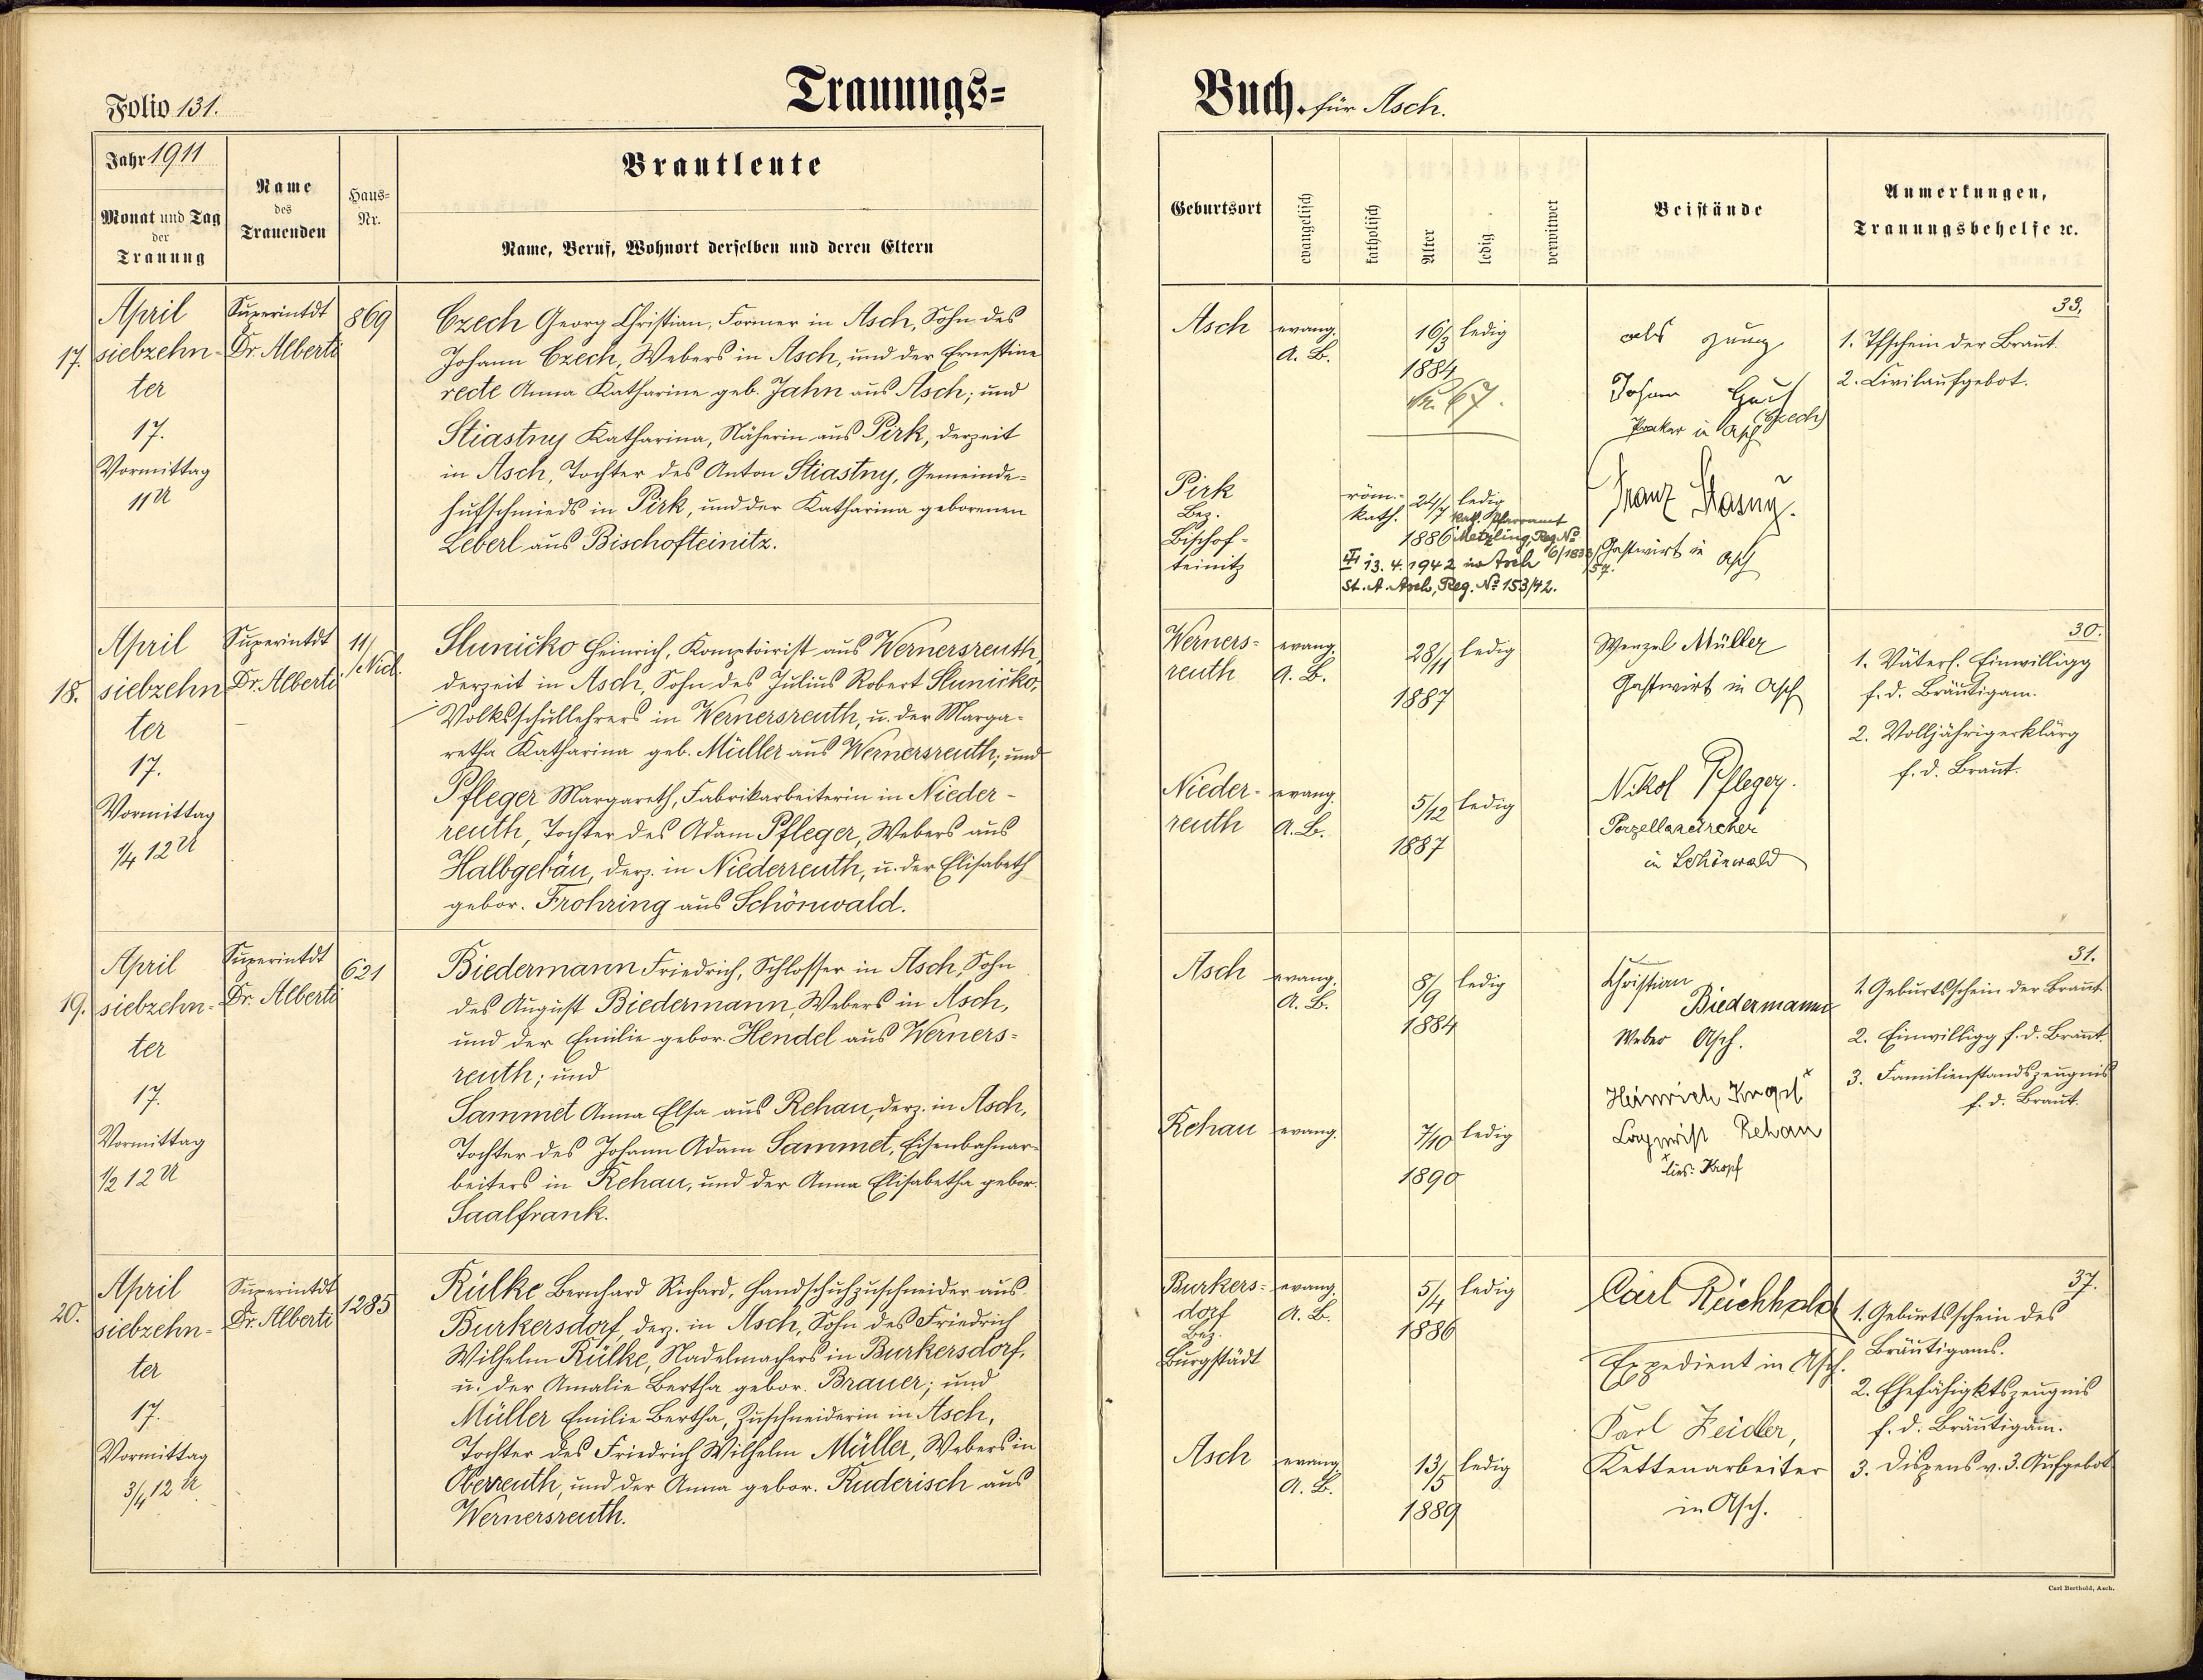 Folio 131.
Trauungs=
Jahr 1911
Monat und Tag
der
Trauung
Name
des
Trauenden
Haus=
Nr.
Brautleute
Name, Beruf, Wohnort derselben und deren Eltern
17.
April
siebzehn=
ter
17.
Vormittag
11 U
Superintdt
Dr. Alberti
869
Czech Georg Christian, Former in Asch, Sohn des
Johann Czech, Webers in Asch, und der Ernestine
recte Anna Katharine geb. Jahn aus Asch; und
Stiastny Katharina, Näherin aus Pirk, derzeit
in Asch, Tochter des Anton Stiastny, Gemeinde=
hufschmieds in Pirk, und der Katharina geborenen
Leberl aus Bischofteinitz.
18.
April
siebzehn
ter
17.
Vormittag
1/4 12 U
Superintdt
Dr. Alberti
11/
Nied.
Sluničko Heinrich, Komptoirist aus Wernersreuth,
derzeit in Asch, Sohn des Julius Robert Slunicko,
Volksschullehrers in Wernersreuth, u. der Marga=
retha Katharina geb. Müller aus Wernersreuth; und
Pfleger Margareth, Fabrikarbeiterin in Nieder=
reuth, Tochter des Adam Pfleger, Webers aus
Halbgebäu, derz. in Niederreuth, u. der Elisabeth
gebor. Frohring aus Schönwald.
19.
April
siebzehn=
ter
17.
Vormittag
1/2 12 U
Superintdt
Dr. Alberti
621
Biedermann Friedrich, Schlosser in Asch, Sohn
des August Biedermann, Webers in Asch,
und der Emilie gebor. Hendel aus Werners=
reuth; und
Sammet Anna Elsa aus Rehau, derz. in Asch,
Tochter des Johann Adam Sammet, Eisenbahnar=
beiters in Rehau, und der Anna Elisabetha gebor.
Saalfrank.
20.
April
siebzehn=
ter
17.
Vormittag
3/4 12 U
Superintdt
Dr. Alberti
1285
Rülke Bernhard Richard, Handschuhzuschneider aus
Burkersdorf, derz. in Asch, Sohn des Friedrich
Wilhelm Rülke, Nadelmachers in Burkersdorf,
u. der Amalie Bertha gebor. Brauer; und
Müller Emilie Bertha, Zuschneiderin in Asch,
Tochter des Friedrich Wilhelm Müller, Webers in
Oberreuth, und der Anna gebor. Ruderisch aus
Wernersreuth.
Buch. für Asch.
Geburtsort
evangelisch
katholisch
Alter
ledig
verwitwet
Beistände
Anmerkungen,
Trauungsbehelfe ec.
Asch
evang.
A. B.
16/3
1884
ledig
als Zeug
Johann
(Czech)
in Asch
33.
1. Tfschein der Braut.
2. Civilaufgebot.
Pirk
Bez.
Bischof=
teinitz
röm.=
kath.
24/7
1886
ledig
kath. Pfarramt
Metzling, Reg. No
13. 4. 1942 in Asch
St. A. Asch, Reg. No 153/42.
Franz Stasny.
Gastwirt in
Asch
Werners=
reuth
evang.
A. B.
28/11
1887
ledig
Wenzel Müller
Gastwirt in Asch
30.
1. Väterl. Einwilligg
f. d. Bräutigam.
2. Volljährigerklärg
f. d. Braut.
Nieder=
reuth
evang.
A. B.
5/12
1887
ledig
Nikol Pfleger.
Porzellandreher
in Schönwald
Asch
evang.
A. B.
8/9
1884
ledig
Christian
Biedermann
Weber Asch.
31.
1. Geburtsschein der Braut.
2. Einwilligg f. d. Braut.
3. Familienstandszeugnis
f. d. Braut.
Rehau
evang.
7/10
1890
ledig
Heinrich
Rehau
lies: Kropf
Burkers=
dorf
Bez.
Burgstädt
evang.
A. B.
5/4
1886
ledig
Carl Reichhold
Expedient in Asch.
37.
1. Geburtsschein des
Bräutigams.
2. Ehefähigktszeugnis
f. d. Bräutigam.
3. Dispens v. 3. Aufgebot
Asch
evang.
A. B.
13/5
1889
ledig
Karl Zeidler,
Kettenarbeiter
in Asch.
Carl Berthold, Asch.